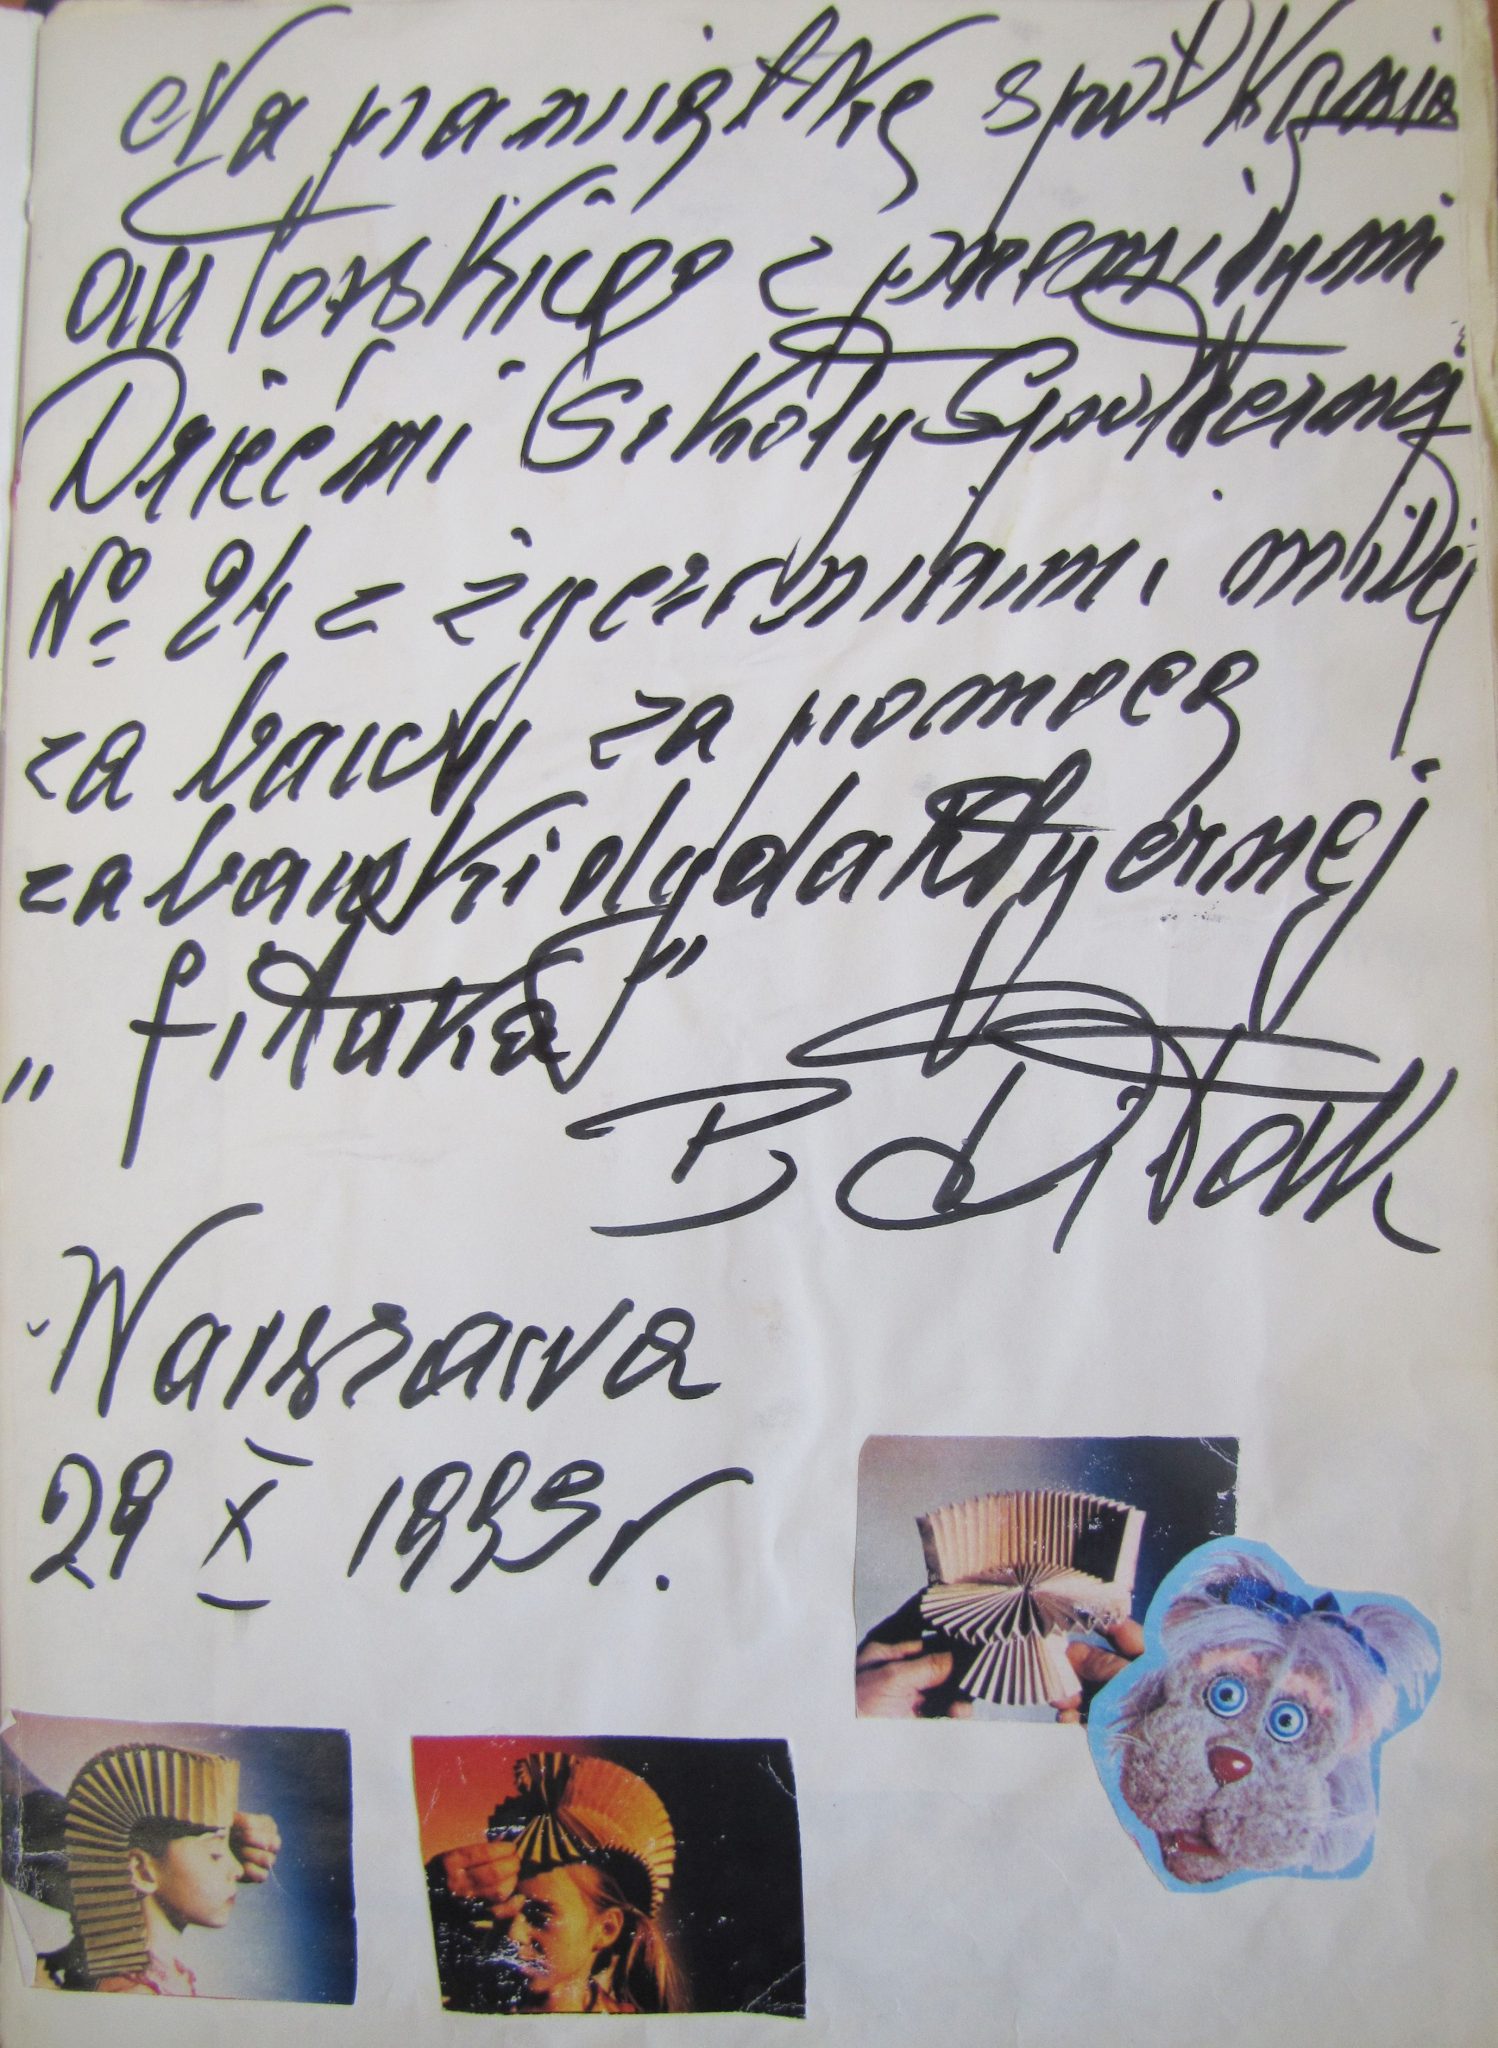 Na pamiątkę spotkania
autorskiego z przemiłymi
Dziećmi Szkoły Społecznej
№ 24 z życzeniami miłej
zabawy za pomocą
zabawki dydaktycznej
„fitaka"
B
Warszawa
29 X 1993 r.